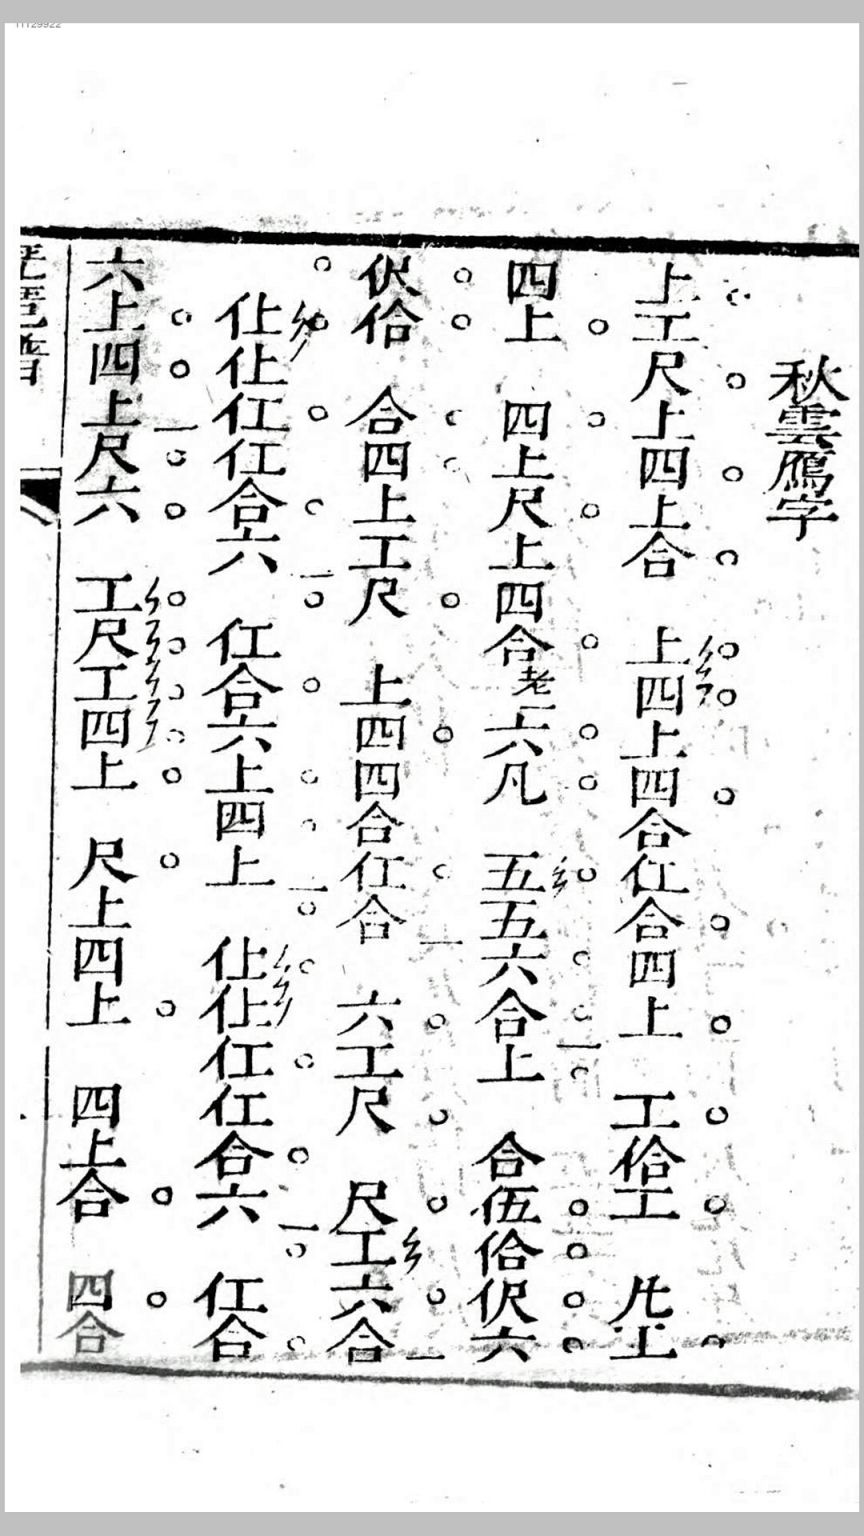 秋雲鴈字
上工尺上四上合 上四上四合仜合四上 工佮工 𠃛𠀍
四上 四上尺上四合老六凡 五五六合上 合伍佮伬六
伬佮 合四上工尺 上四四合仜合 六工尺 尺工六合
仩仩仜仜合六 仜合六上四上 仩仩仜仜合六 仜合
六上四上尺六 工尺工四上 尺上四上 四上合 四合
琵琶譜